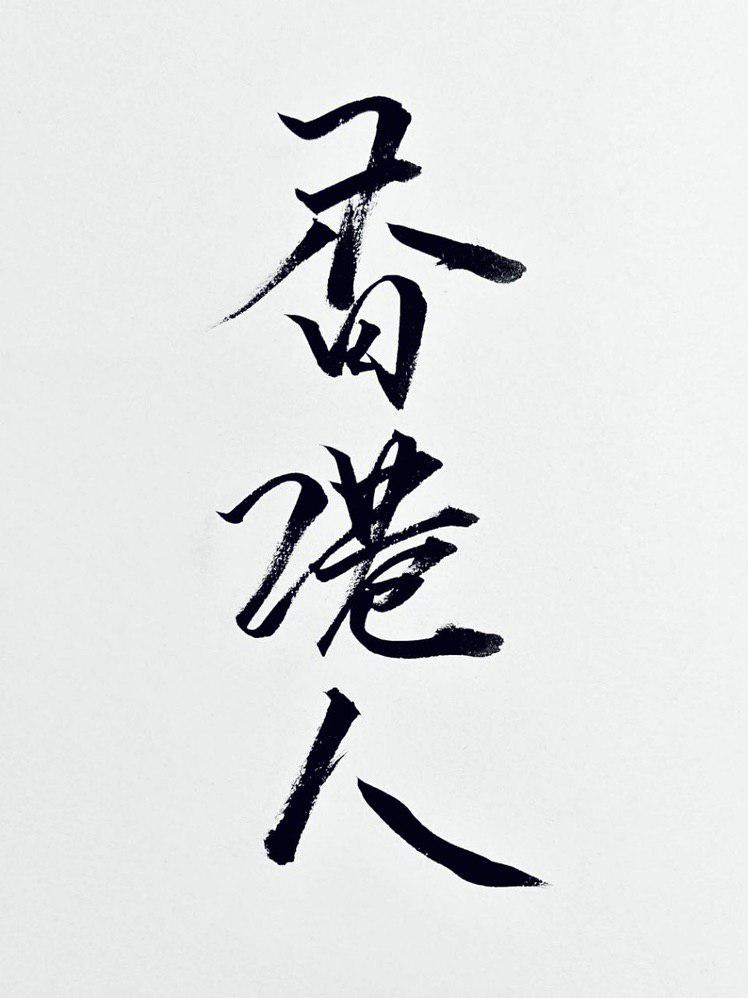 香港人